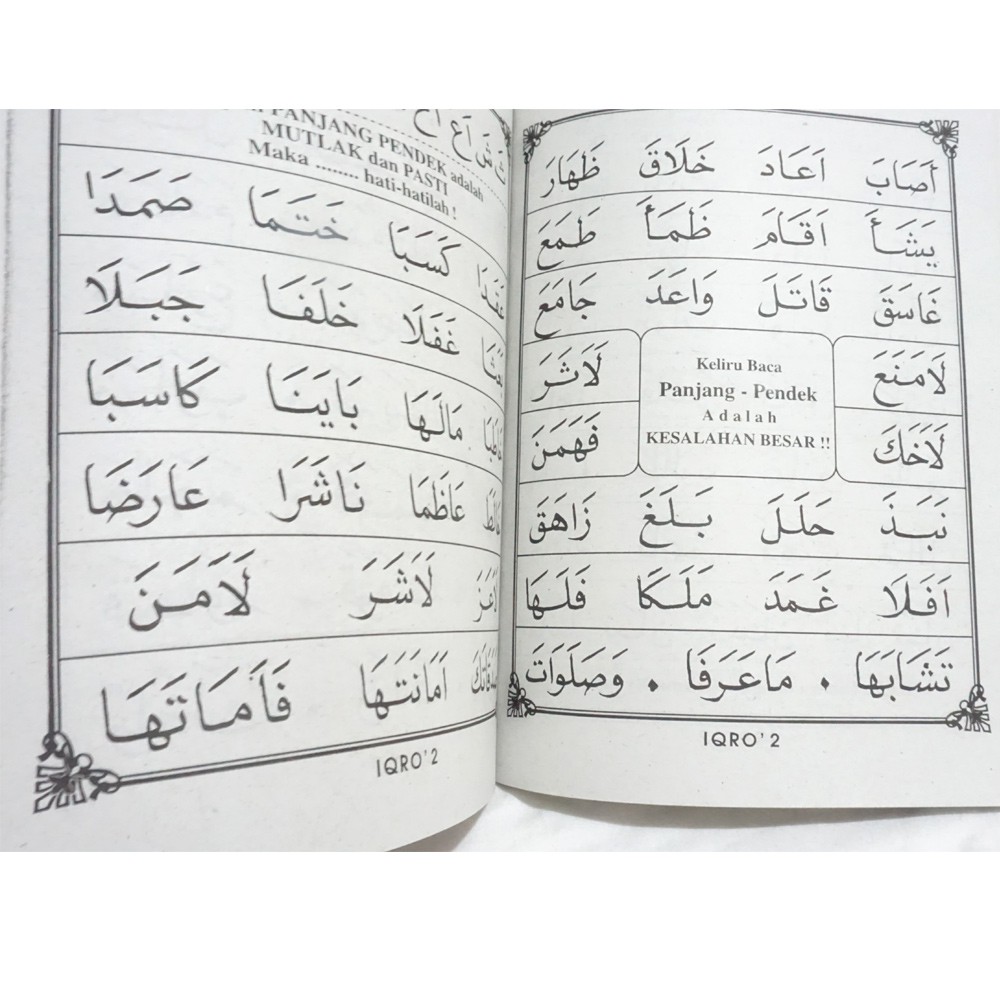 أَصَابَ اَعَادَ خَلَاقَ ظَهَارَ
يَشَأَ اَقَامَ ظَمَأَ طَمَعَ
غَاسَقَ قَاتَلَ وَاعَدَ جَامَعَ
لَامَنَعَ لَاثَرَ
Keliru Baca
Panjang - Pendek
Adalah
KESALAHAN BESAR !!
لَاخَكَ فَهَمَنَ
نَبَذَ حَلَلَ بَلَغَ زَاهَقَ
اَفَلَا غَمَدَ مَلَكَا فَلَهَا
تَشَابَهَا . مَاعَرَفَا . وَصَلَوَاتَ
IQRO' 2
PANJANG PENDEK adalah
MUTLAK dan PASTI
Maka ........ hati-hatilah !
عَقَدَا كَسَبَا خَتَمَا صَمَدَا
غَفَلَا خَلَفَا جَبَلَا
مَالَهَا بَايَنَا كَاسَبَا
عَاظَمَا نَاشَرَا عَارَضَا
لَاشَرَ لَامَنَ
اَمَانَتَهَا فَأَمَاتَهَا
IQRO' 2